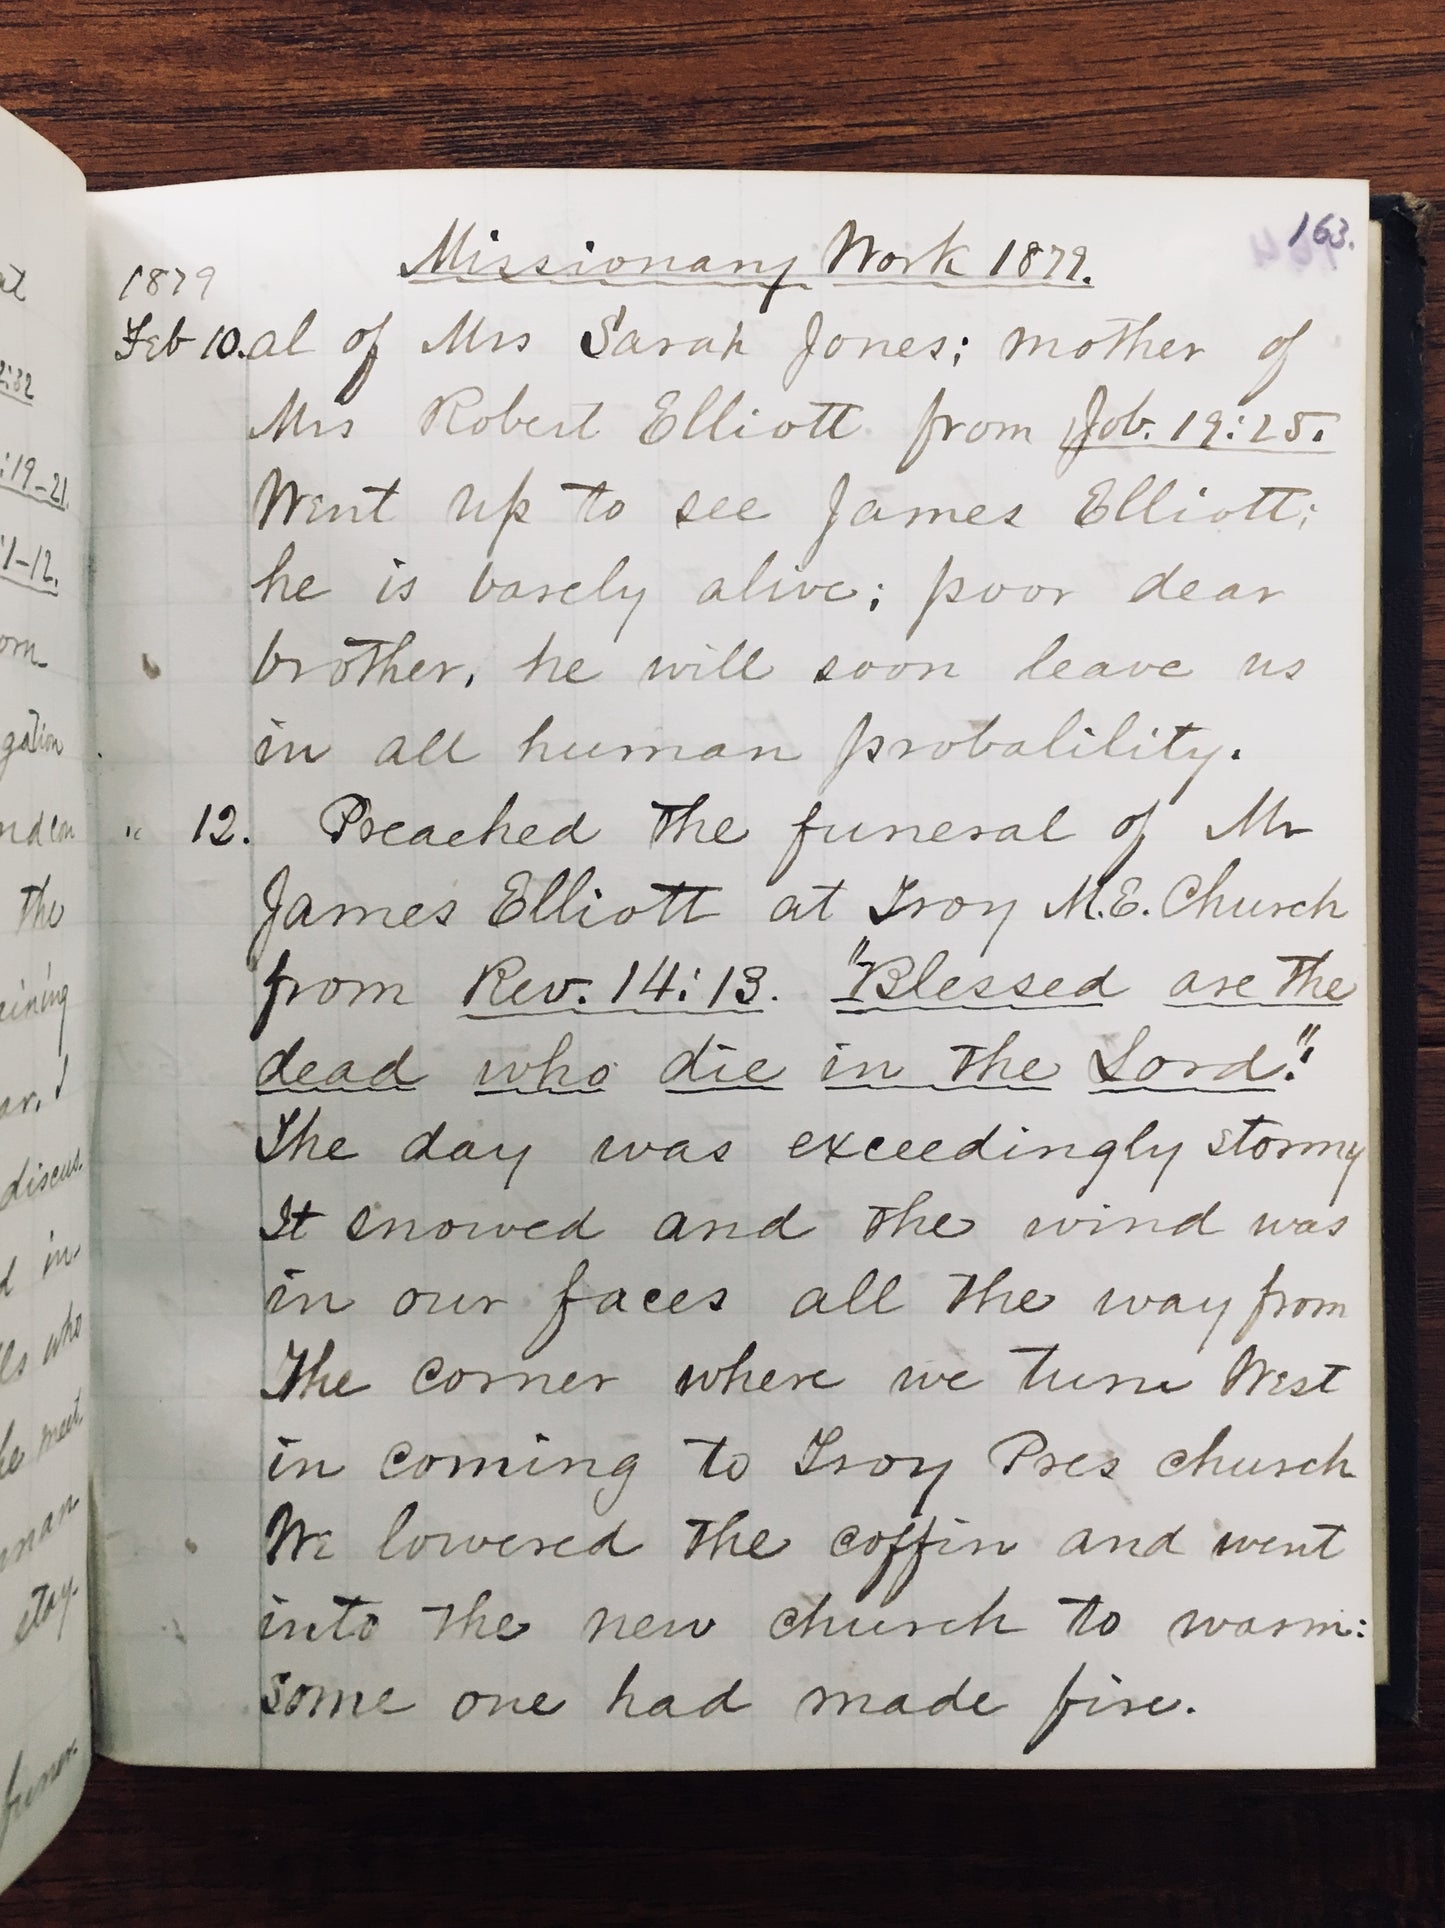 at
2:32
:19-21
:1-12.
orn
gation
and con
the
aining
ar. I
discus
d in-
ls who
he meet
man
stay-
funer-
163.
Missionary Work 1879.
1879
Feb 10. al of Mrs Sarah Jones; mother of
Mrs Robert Elliott from Job. 19:25.
Went up to see James Elliott;
he is barely alive; poor dear
brother, he will soon leave us
in all human probalility.
" 12. Preached the funeral of Mr
James Elliott at Troy M.E. Church
from Rev. 14:13. "Blessed are the
dead who die in the Lord."
The day was exceedingly stormy
It snowed and the wind was
in our faces all the way from
The corner where we turn West
in coming to Troy Pres church
We lowered the coffin and went
into the new church to warm:
some one had made fire.